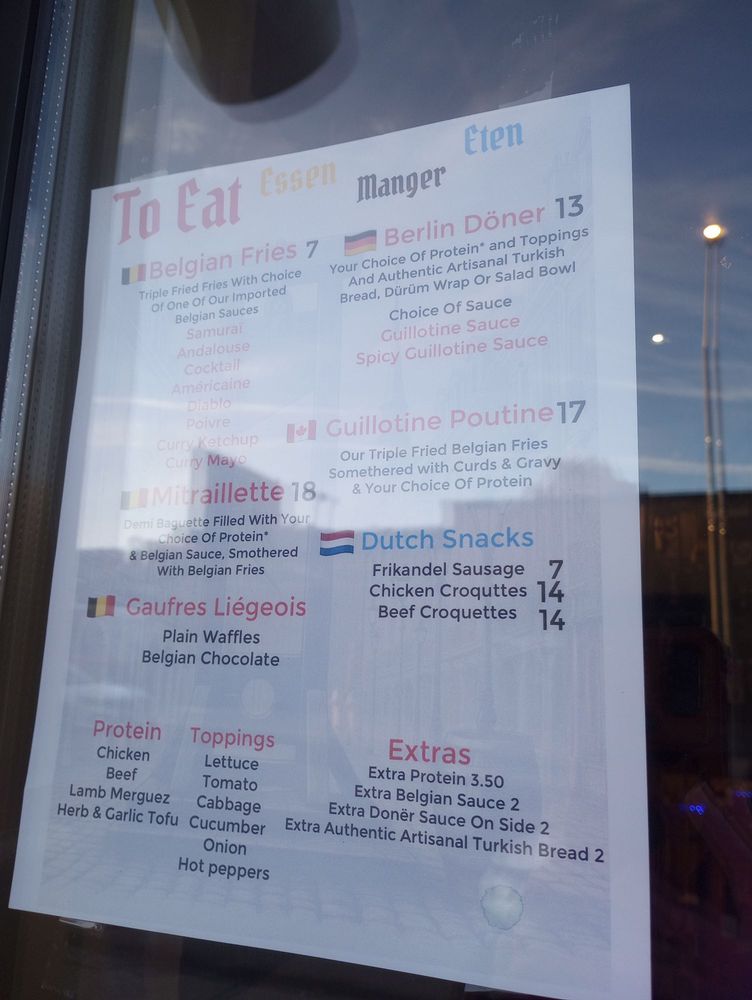 To Eat Essen Manger Eten
Belgian Fries 7
Triple Fried Fries With Choice
Of One Of Our Imported
Belgian Sauces
Samuraï
Andalouse
Cocktail
Américaine
Diablo
Poivre
Curry Ketchup
Curry Mayo
Mitraillette 18
Demi Baguette Filled With Your
Choice Of Protein*
& Belgian Sauce, Smothered
With Belgian Fries
Gaufres Liégeois
Plain Waffles
Belgian Chocolate
Berlin Döner 13
Your Choice Of Protein* and Toppings
And Authentic Artisanal Turkish
Bread, Dürüm Wrap Or Salad Bowl
Choice Of Sauce
Guillotine Sauce
Spicy Guillotine Sauce
Guillotine Poutine 17
Our Triple Fried Belgian Fries
Somethered with Curds & Gravy
& Your Choice Of Protein
Dutch Snacks
Frikandel Sausage 7
Chicken Croquttes 14
Beef Croquettes 14
Protein
Chicken
Beef
Lamb Merguez
Herb & Garlic Tofu
Toppings
Lettuce
Tomato
Cabbage
Cucumber
Onion
Hot peppers
Extras
Extra Protein 3.50
Extra Belgian Sauce 2
Extra Donër Sauce On Side 2
Extra Authentic Artisanal Turkish Bread 2